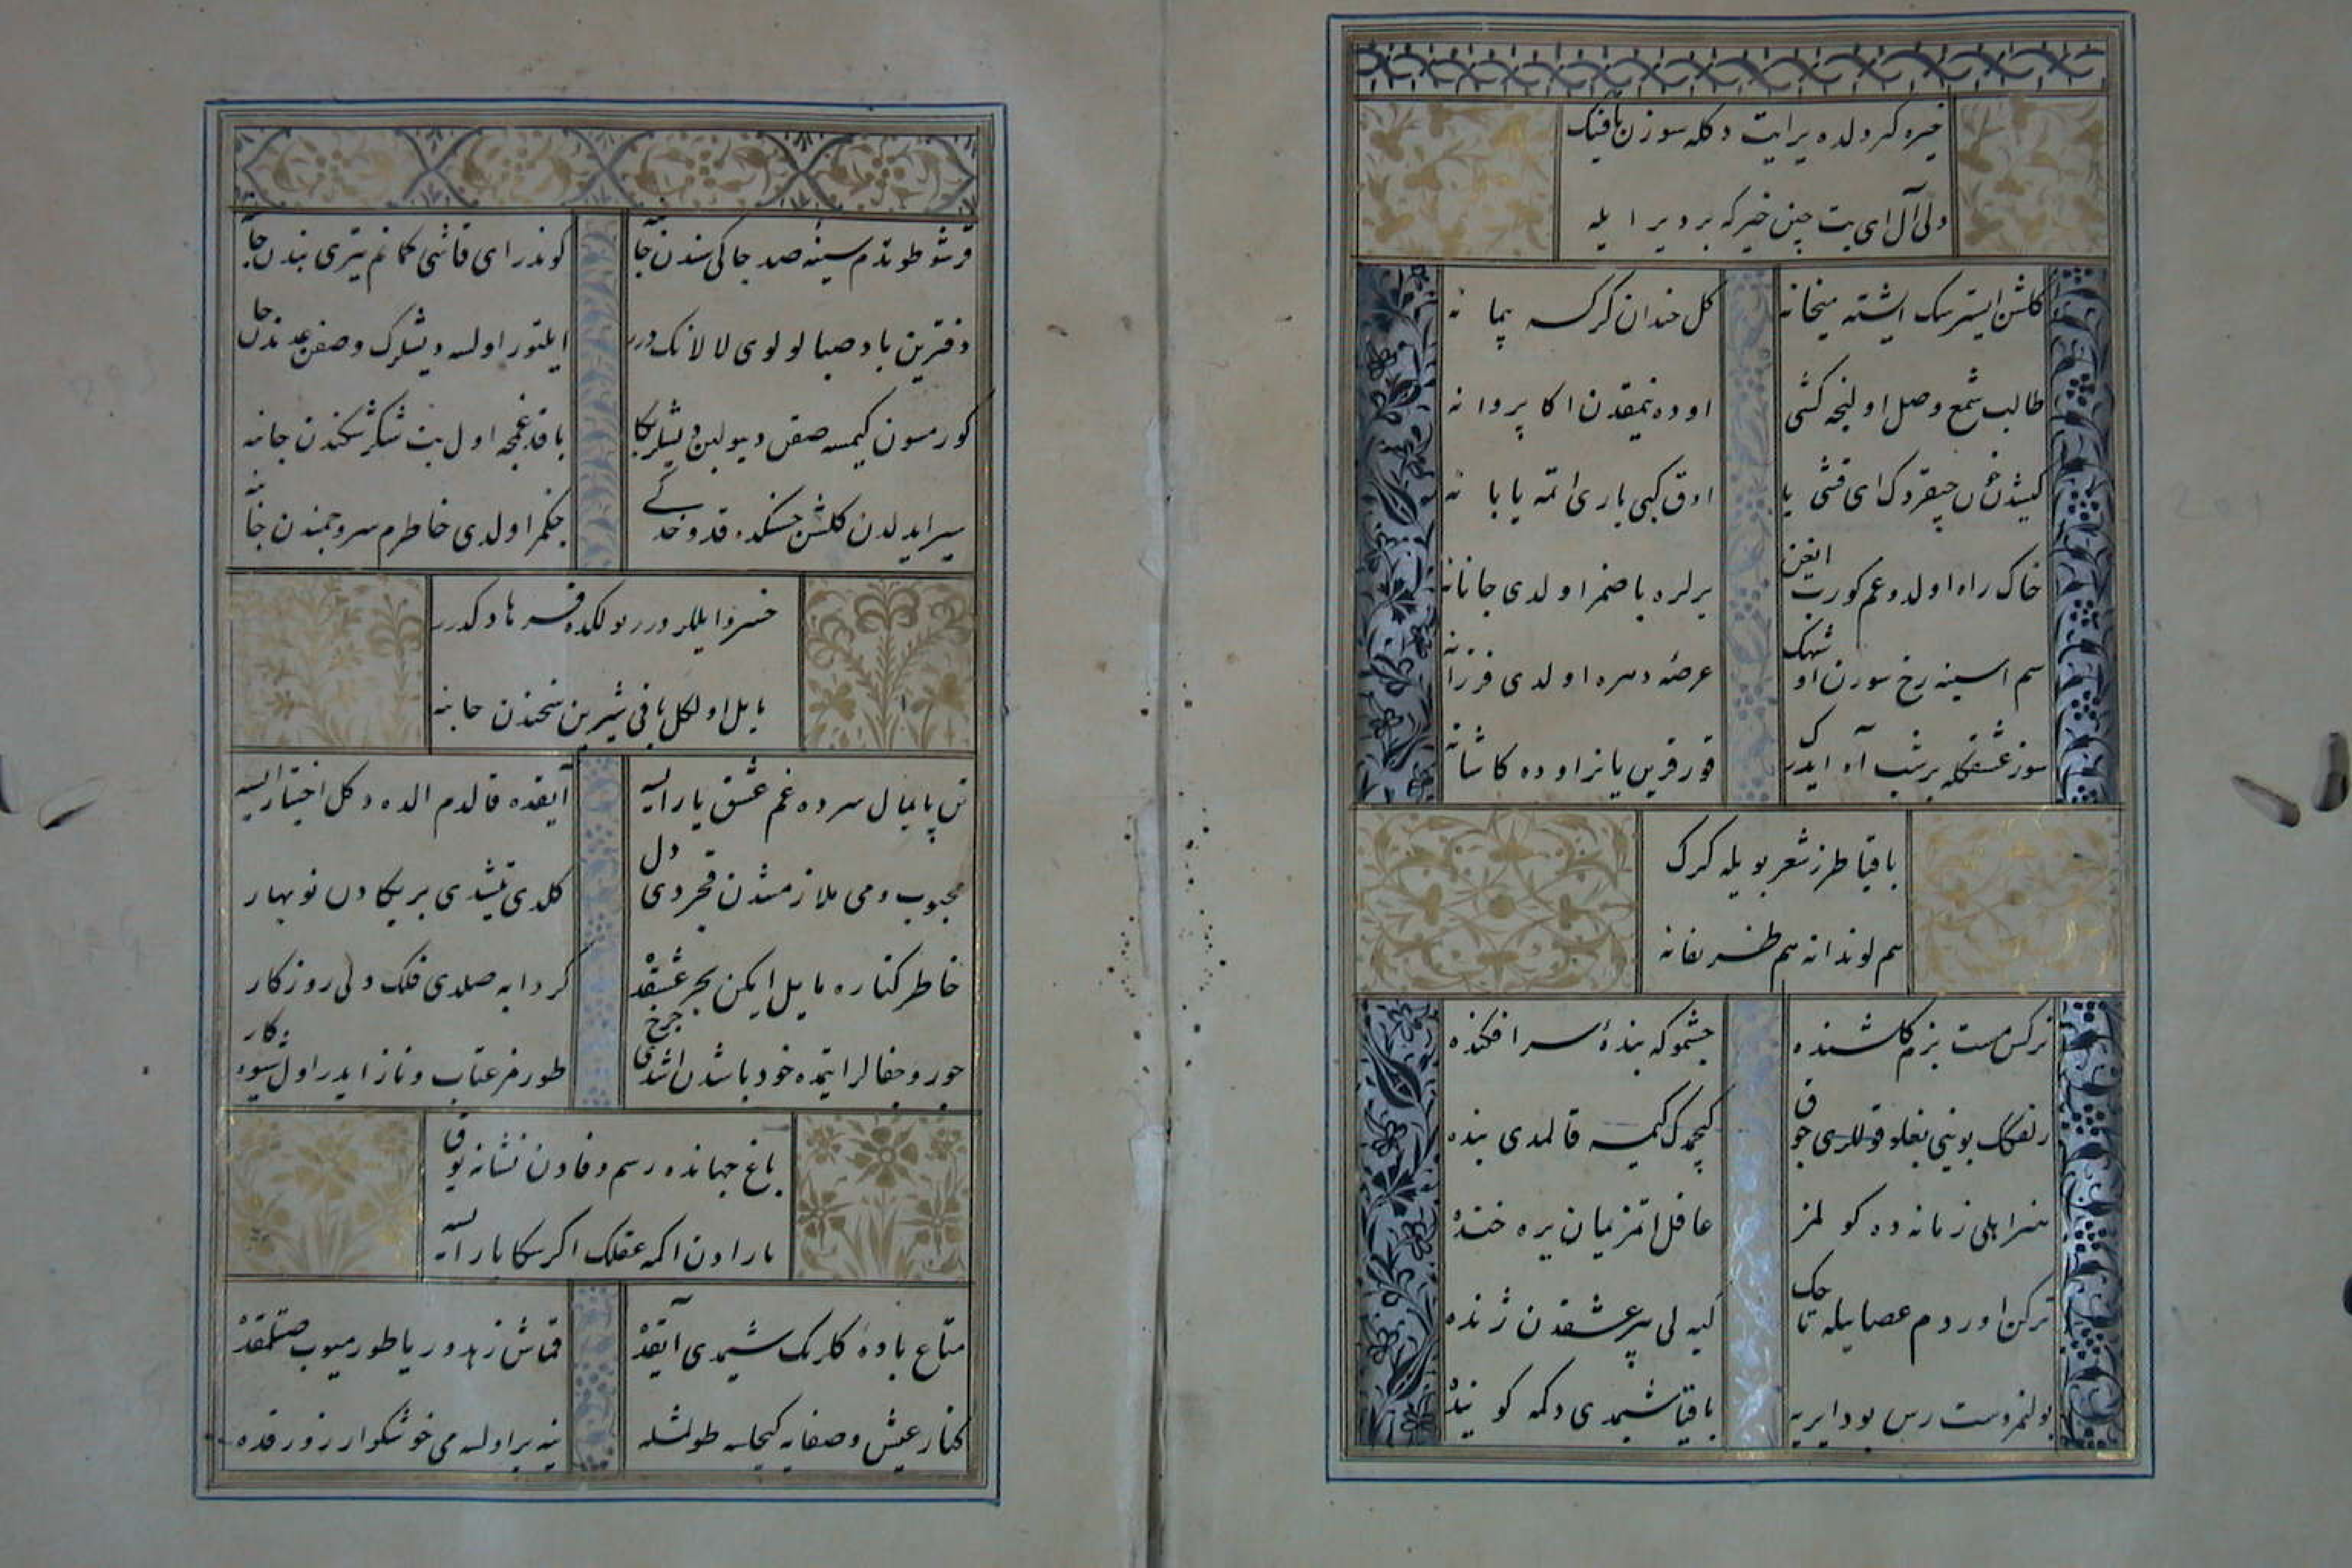 خیره کردلده یرایت دکله سوزن باقینک
دلی آل ای بت چین خیرکه بر دیر ایله
کلشن ایسترسک ایشته میخانه
کل خندان کرکسه پیمانه
طالب شمع وصل اولنجه کشی
اوده یمقدن اکا پروا نه
کیشدن چیقردک ای قشی یا
اوق کبی باری اتمه یابانه
خاک راه اولدوغم کورب
یرلره باصمز اولدی جانانه
سم اسبینه رخ سورن او شهک
عرصه دهره اولدی فرزانه
سوز عشقکله بر شب آه ایدرک
قورقرین یانر اوده کاشانه
باقیا طرز شعر بویله کرک
هم لوندانه هم ظریفانه
نرکس مست بزم کلشنده
چشموکه بندۀ سرافکنده
زلفک بوینی بغلو قوللری چوق
کیمسه قالمدی بنده
هنر اهلی زمانه ده کولمز
عاقل اتمز یمان یره خنده
نرکس اوردم عصابیله تاجک
کیه لی پیر عشقدن ژنده
بولنمز دست رس بودایریه
باقیا شیمدی دکمه کوینده
قرشو طوتدم سینۀ صد چاکی سندن جانبه
کوندر ای قاشی کمانم تیری بندن جانبه
دفترین باد صبا لولوی لالانک دورر
ایلتور اولسه دیشلرک وصفن عدندن جانبه
کورمسون کیمسه صقن دیو لبن دیشلر سکا
باقد غنجه اول بت شکر شکندن جانبه
سیر ایدلدن کلشن حسنکده قد و خدکی
چکمز اولدی خاطرم سرو چمندن جانبه
خسروا یللر دورر بولکده فرهاد کدر
مایل اولکل باقی شیرین سخندن جانبه
تن پایمال سرده غم عشق یار ایسه
آیقده قالدم الده دکل اختیار ایسه
محبوب و می ملازمشدن قجردی دل
کلدی تیشدی بر یکادن نوبهار
خاطر کناره مایل ایکن بحر عشقده
کردابه صلدی فلک دلی روزکار
جور و جفالر ایتمده خود باشدن اشدی چرخ
طورمز عتاب و ناز ایدر اول شیوه کار
باغ جهانده رسم وفادن نشانه یوق
یار اودن اکمه عقلک اکر سکا یار ایسه
متاع باده کلرنک شیمدی آیقده
قماش زهد و ریا طورمیوب صتلمقده
کنار عیش و صفایه کیجاسه طولشله
نیه یر اولسه می خوشکوار زورقده